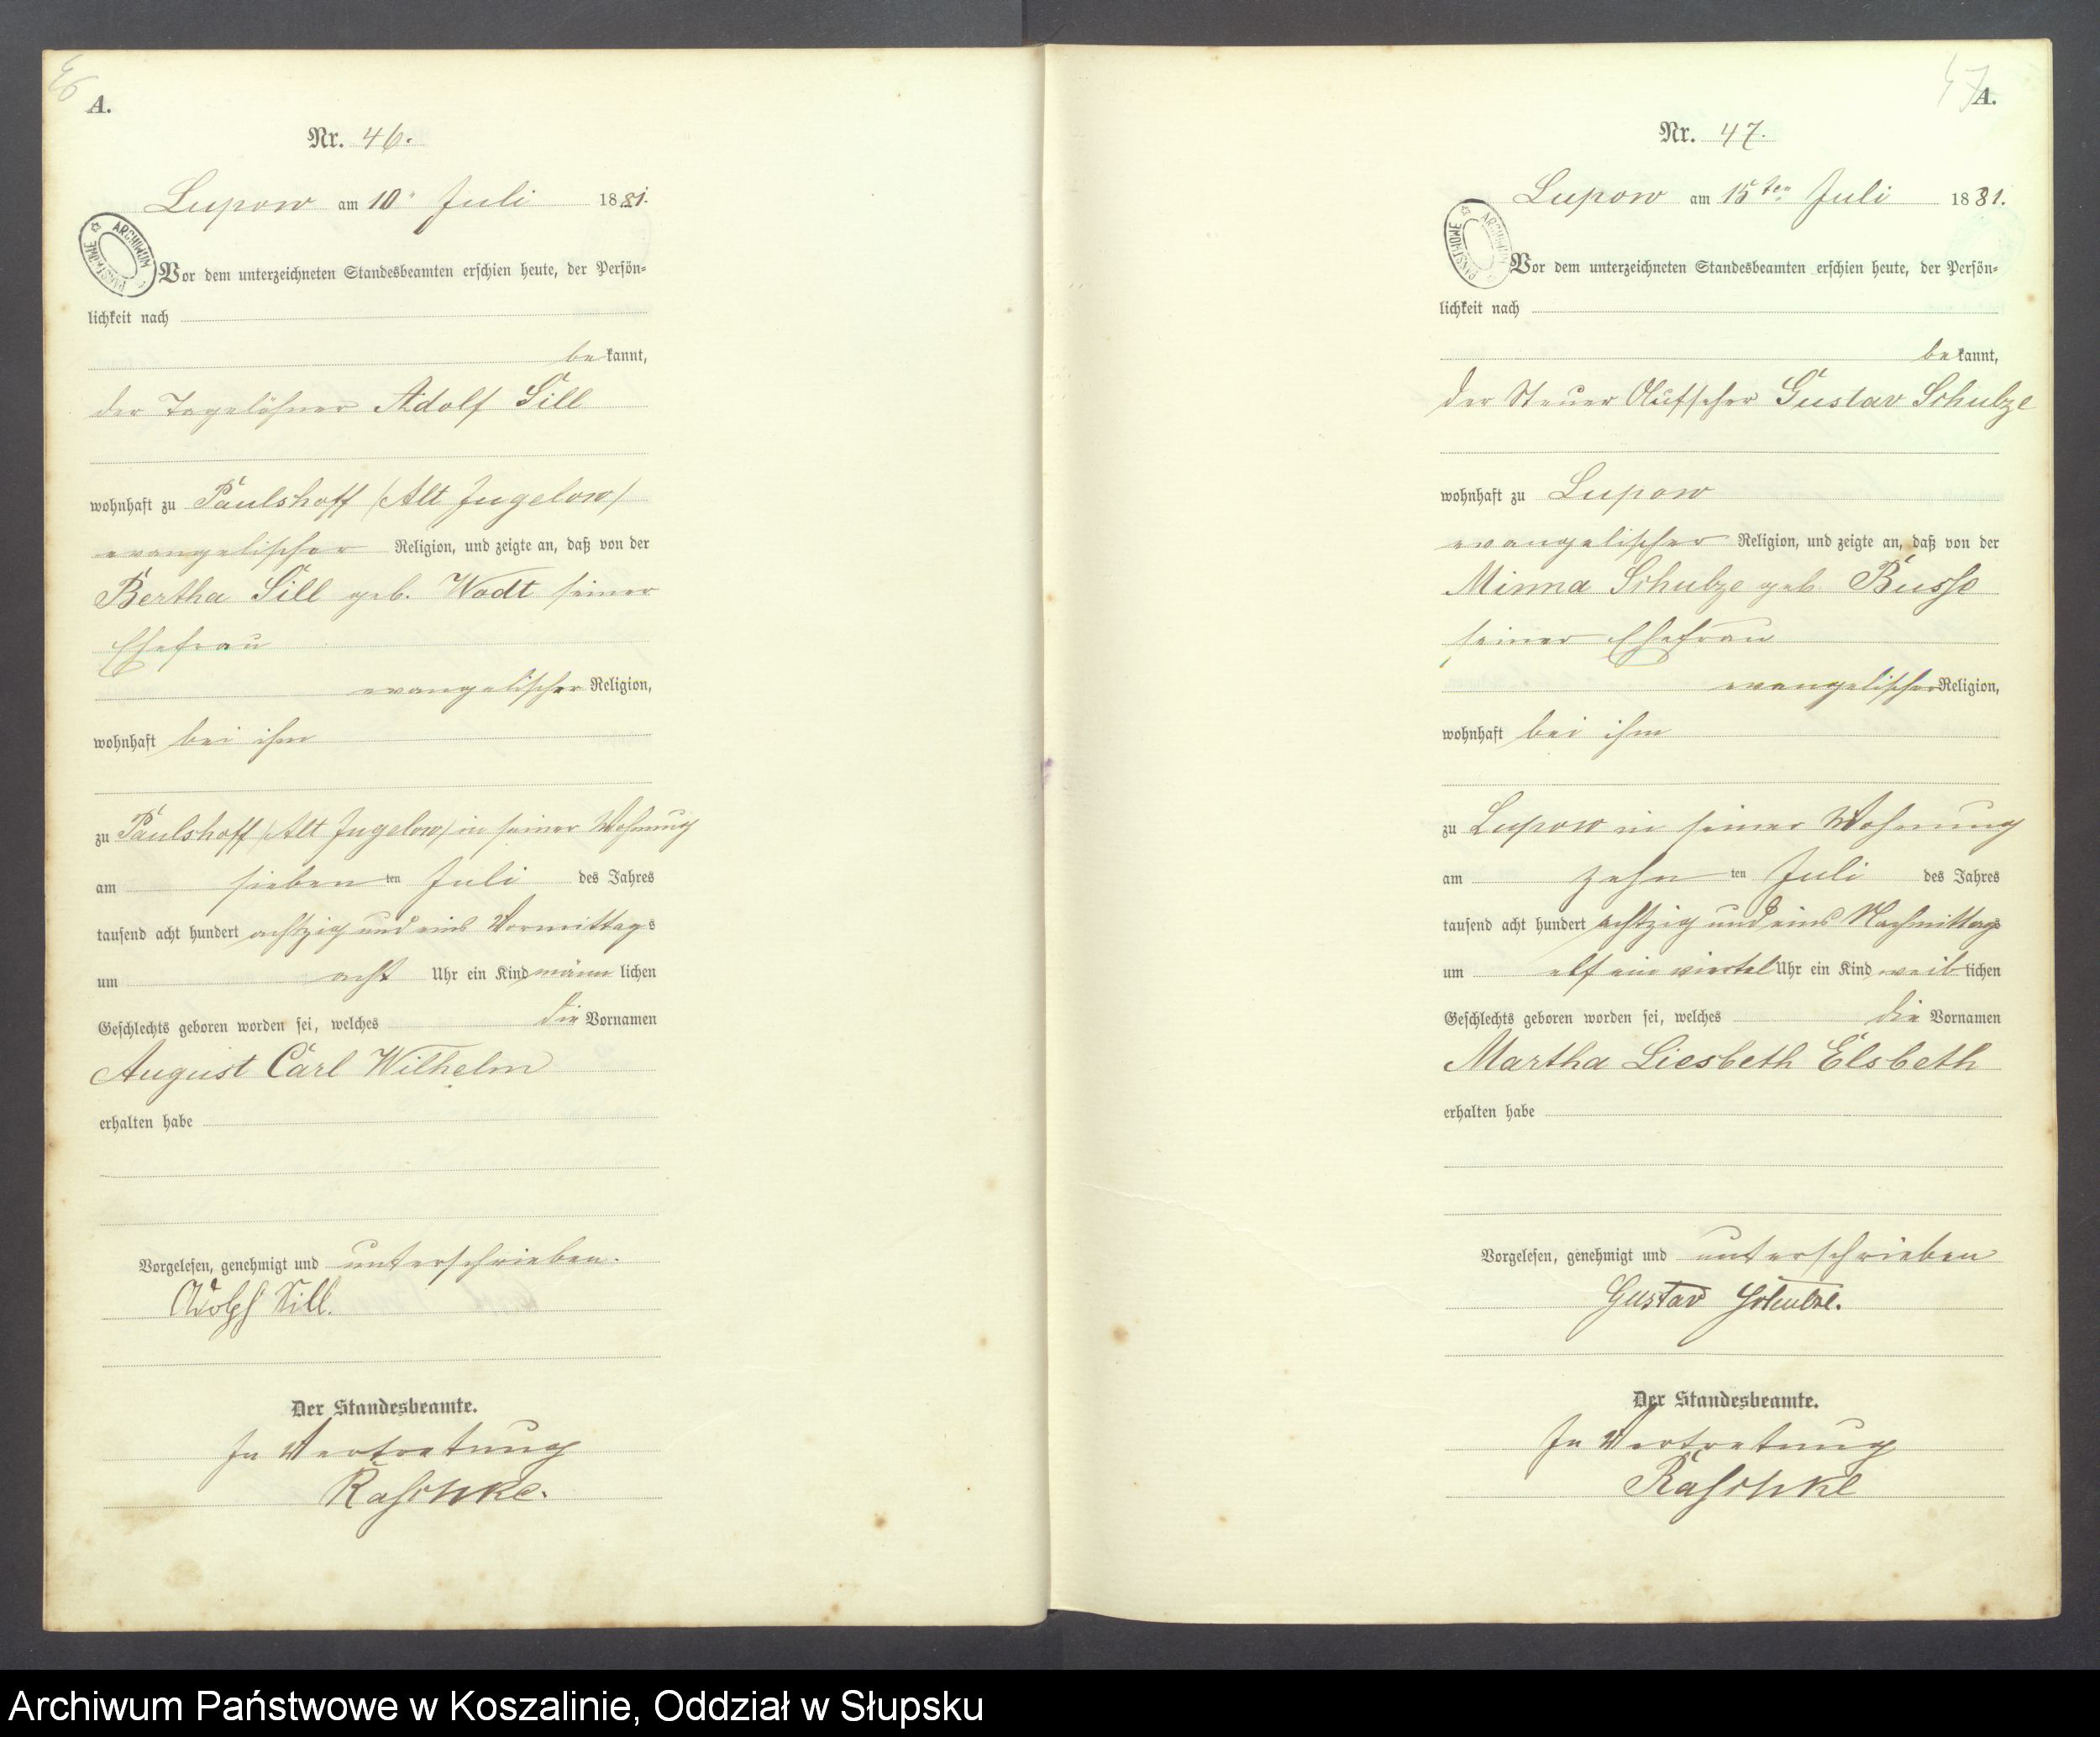 46
A.
Nr. 46.
Lupow am 10. Juli 1881.
ARCHIWUM PAŃSTWOWE
Vor dem unterzeichneten Standesbeamten erschien heute, der Persön=
lichkeit nach
bekannt,
der Tagelöhner Adolf Sill
wohnhaft zu Paulshoff (Alt Jugelow)
evangelischer Religion, und zeigte an, daß von der
Bertha Sill geb. Wodt seiner
Ehefrau
evangelischer Religion,
wohnhaft bei ihm
zu Paulshoff (Alt Jugelow) in seiner Wohnung
am sieben ten Juli des Jahres
tausend acht hundert achtzig und eins Vormittags
um acht Uhr ein Kind männlichen
Geschlechts geboren worden sei, welches die Vornamen
August Carl Wilhelm
erhalten habe
Vorgelesen, genehmigt und unterschrieben.
Adolph Sill.
Der Standesbeamte.
In Vertretung
Raschke.
47
A.
Nr. 47.
Lupow am 15ten Juli 1881.
ARCHIWUM PAŃSTWOWE
Vor dem unterzeichneten Standesbeamten erschien heute, der Persön=
lichkeit nach
bekannt,
der Steuer Gustav Schulze
wohnhaft zu Lupow
evangelischer Religion, und zeigte an, daß von der
Minna Schulze geb. Busse
seiner Ehefrau
evangelischer Religion,
wohnhaft bei ihm
zu Lupow in seiner Wohnung
am zehn ten Juli des Jahres
tausend acht hundert achtzig und eins Nachmittags
um elf ein viertel Uhr ein Kind weiblichen
Geschlechts geboren worden sei, welches die Vornamen
Martha Liesbeth Elsbeth
erhalten habe
Vorgelesen, genehmigt und unterschrieben
Gustav Schulze.
Der Standesbeamte.
In Vertretung
Raschke
Archiwum Państwowe w Koszalinie, Oddział w Słupsku